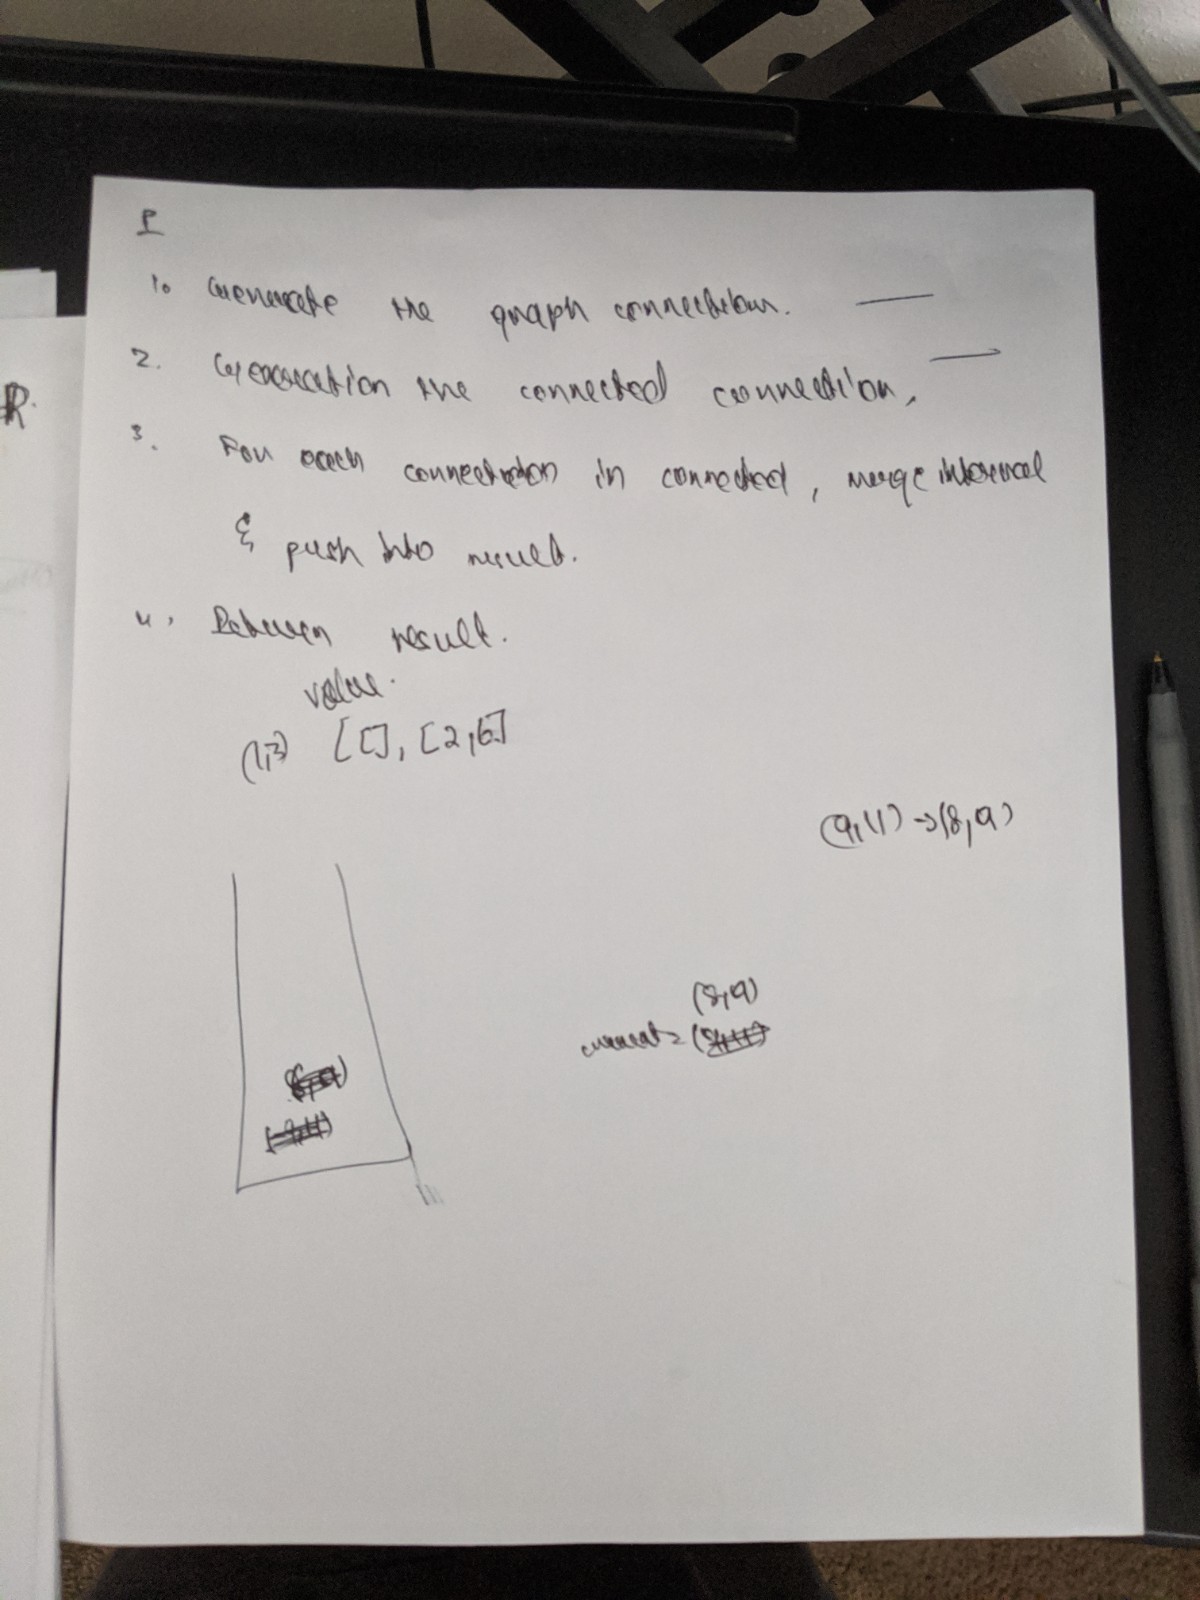 R.
P
1. Generate the graph connection.
2. Generation the connected connection,
3. For each connection in connected, merge interval
& push into result.
4. Return result.
value.
(1,3) [[], [2,6]
(9,11) → (8,9)
(8,9)
current =